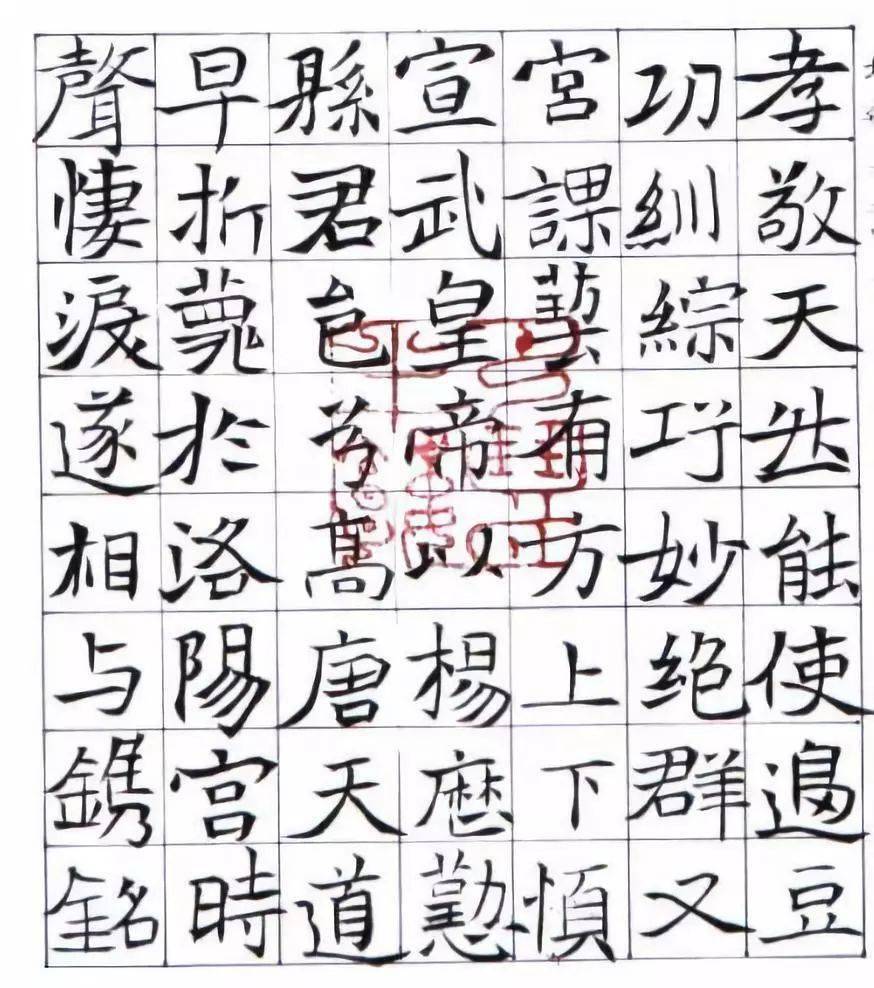 孝敬天然能使邊豆
功紃綜巧妙絶群又
宮課藝有方上下慎
宣武皇帝以楊歷懃
縣君邑号高唐天道
早折薨於洛陽宮時
聲悽淚遂相与鐫銘